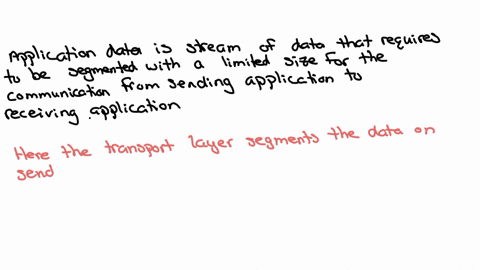 Application data is stream of data that requires
to be segmented with a limited size for the
communication from sending application to
receiving application
Here the transport layer segments the data on
send